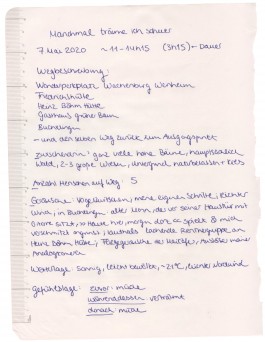 Manchmal träume ich schwer
7. Mai 2020 ~11-14h15 (3h15) = Dauer
Wegbeschreibung:
Wanderparkplatz Wachenburg Weinheim
Fuchsmühle
Heinz Böhm Hütte
Gasthaus grüner Baum
Buchklingen
- und denselben Weg zurück zum Ausgangspunkt
zwischendrin: ganz viele hohe Bäume, hauptsächlich
Wald, 2-3 große Wiesen, Untergrund naturbelassen + Kies
Anzahl Menschen auf Weg: 5
Geräusche: Vogelzwitschern, meine eigenen Schritte, leichter
Wind, in Buchklingen alter Mann, der vor seiner Haustür mit
Gitarre sitzt, "
verschmitzt angrinst, lauthals lachende Rentnergruppe an
Heinz Böhm Hütte, Fluggeräusche, Auslöser meiner
Analogkamera
Wetterlage: sonnig, leicht bewölkt, ~21°C, leichter Nordwind
Gefühlslage: zuvor: müde
währenddessen: verträumt
danach: müde